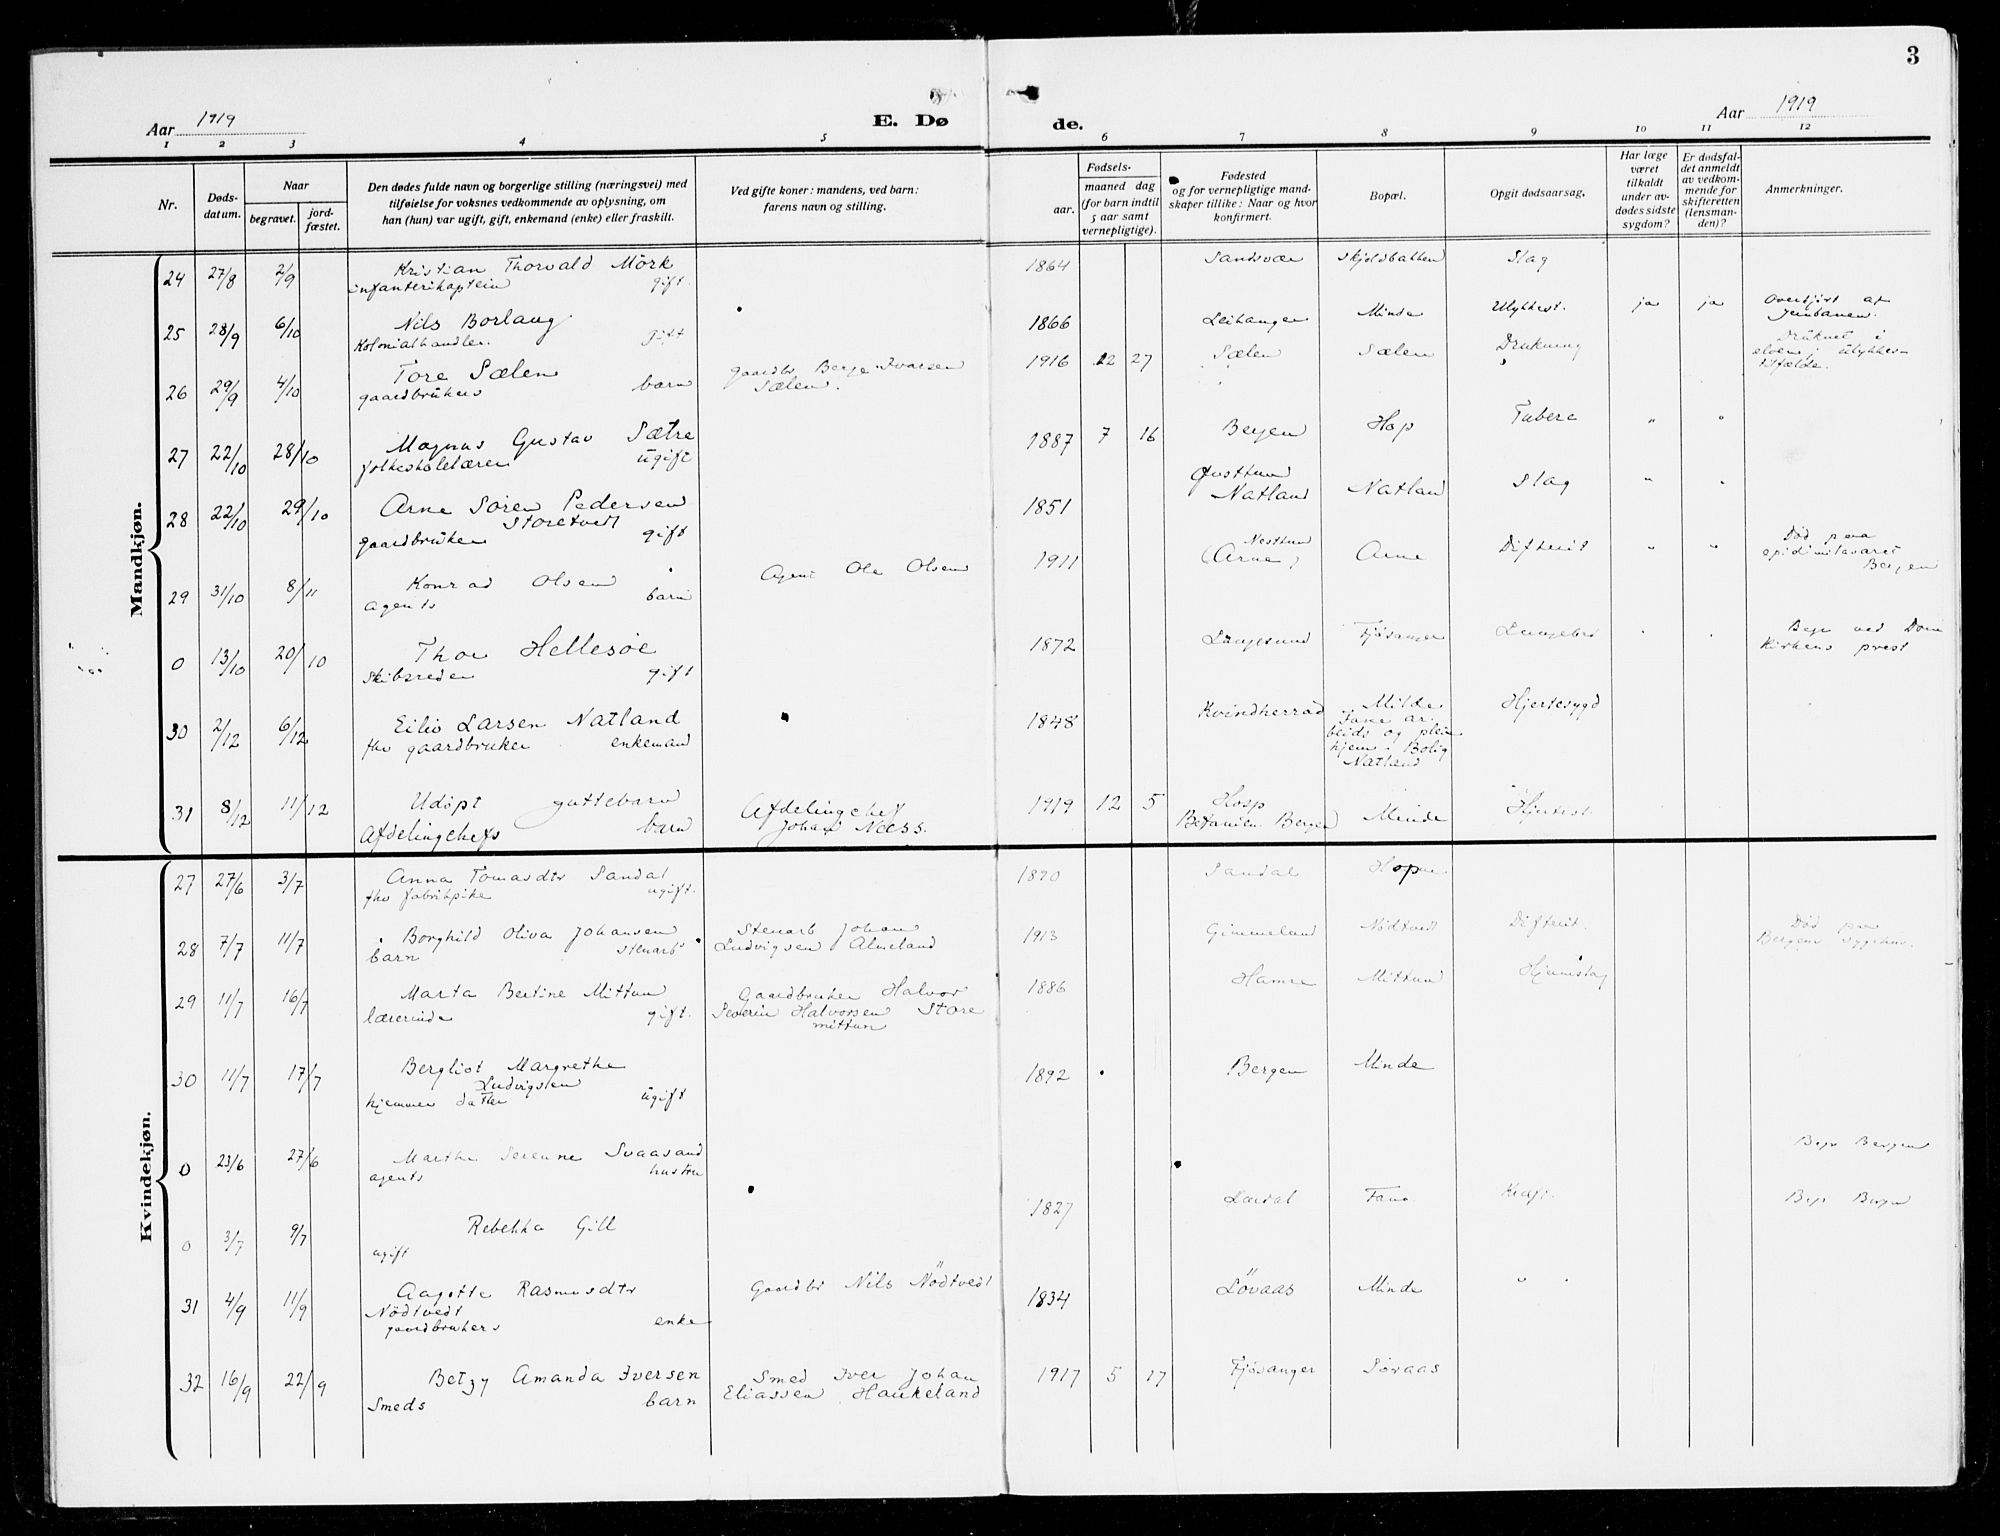 3
Aar 1919 E. Dø de. Aar 1919
1 2 3 4 5 6 7 8 9 10 11 12
Nr. Døds-datum. Naar begravet. jord-fæstet. Den dødes fulde navn og borgerlige stilling (næringsvei) med tilføielse for voksnes vedkommende av oplysning, om han (hun) var ugift, gift, enkemand (enke) eller fraskilt. Ved gifte koner: mandens, ved barn: farens navn og stilling. Fødsels- aar. maaned dag (for barn indtil 5 aar samt vernepligtige). Fødested og for vernepligtige mandskaper tillike: Naar og hvor konfirmert. Bopæl. Opgit dødsaarsag. Har læge været tilkaldt under avdødes sidste sygdom? Er dødsfaldet anmeldt av vedkommende for skifteretten (lensmanden)? Anmerkninger.
Mandkjøn.
24 27/8 2/9 Kristian Thorvald Mörk 1864 Sandsvær Skjoldbakken Slag
infanterikaptein gift.
25 28/9 6/10 Nils Borlaug 1866 Leikanger Minde Ulykkest. ja ja Overkjørt av
Kolonialhandler. gift Jernbanen.
26 29/9 4/10 Tore Sælen gaardbr Berge Ivarsen 1916 12 27 Sælen Sælen Drukning Druknet i
gaardbrukers barn Sælen. elven; ulykkes-
tilfælde.
27 22/10 28/10 Magnus Gustav Sætre 1887 7 16 Bergen Hop Tubera " "
folkeskolelærer ugift
28 22/10 29/10 Arne Sören Pedersen 1851 Øvsttun Natland Natland Slag " "
Storetvedt
gaardbruker gift
29 31/10 8/11 Konrad Olsen Agent Ole Olsen 1911 Nesttun (Arne) Arne Difterit " " Død paa
agents barn epidimilasaret
Bergen
0 13/10 20/10 Thor Hellesöe 1872 Langesund Fjösanger Lungebet Begr ved Dom
Skibsreder gift kirkens prest
30 2/12 6/12 Eilio Larsen Natland 1848 Kvindherrad Milde Hjertesygd
fhv gaardbruker enkemand Fane ar.
beids og pleie
hjem. Bolig
Natland
31 8/12 11/12 Udöpt guttebarn Afdelingchef 1919 12 5 Hosp Minde
Afdelingchefs barn Johan Næss. Betanien Bergen
Kvindekjøn.
27 27/6 3/7 Anna Tomasdtr Sandal 1890 Sandal Hope
fhv fabrikpike ugift.
28 7/7 11/7 Borghild Oliva Johansen Stenarb Johan 1913 Gimmeland Nödtvedt Difterit. Död paa
barn stenarbs Ludvigsen Almeland Bergens sygehus.
29 11/7 16/7 Marta Bertine Mittun Gaardbruker Halvor 1886 Hamre Mittun Hjerneslag
lærerinde gift. Severin Halvorsen Store
mittun
30 11/7 17/7 Bergliot Margrethe 1892 Bergen Minde
Ludvigsen
hjemmev datter ugift
0 23/6 27/6 Marthe Serenne Svaasand Begr Bergen
agents hustru
0 3/7 9/7 Rebekka Gill 1827 Lærdal Fana Kræft. Begr Bergen
ugift
31 4/9 11/9 Aagotte Rasmusdtr Gaardbr Nils Nödtvedt 1834 Lövaas Minde "
Nödtvedt
gaardbrukers enke
32 16/9 22/9 Betzy Amanda Iversen Smed Iver Johan 1917 5 17 Fjösanger Søraas
Smeds barn Eliassen Haukeland